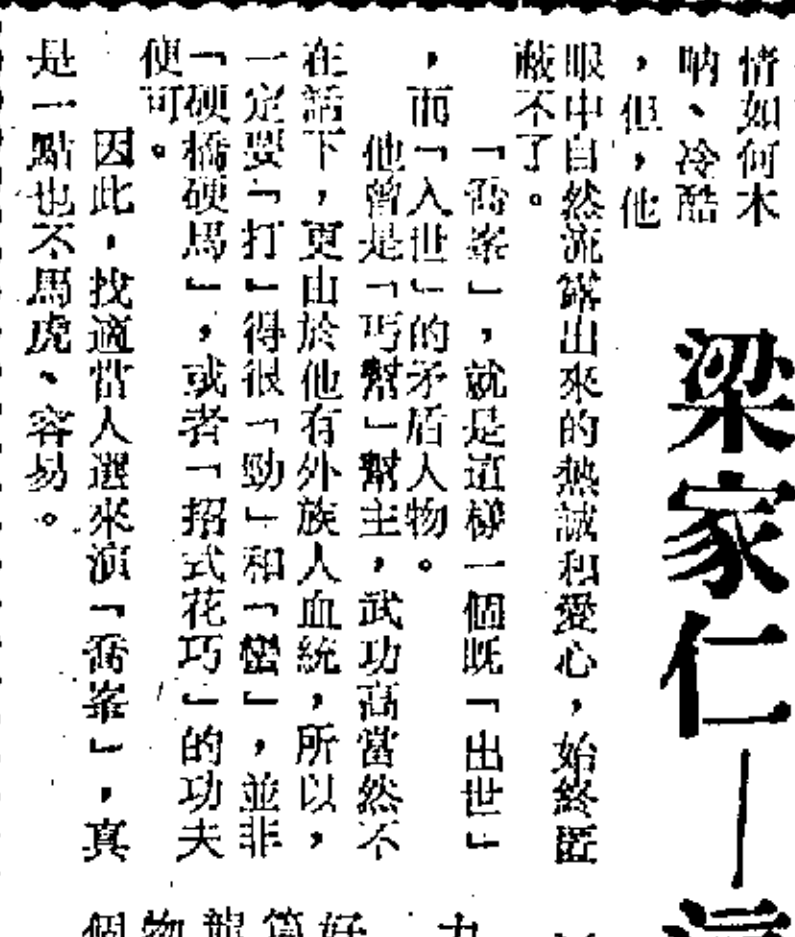 梁家仁—
情如何木
吶、冷酷
，但，他
眼中自然流露出來的熱誠和愛心，始終匿
蔽不了。
「喬峯」，就是這樣一個既「出世」
，而「入世」的矛盾人物。
他曾是「丐幫」幫主，武功高當然不
在話下，更由於他有外族人血統，所以，
一定要「打」得很「勁」和「蠻」，並非
「硬橋硬馬」，或者「招式花巧」的功夫
便可。
因此，找適當人選來演「喬峯」，真
是一點也不馬虎、容易。